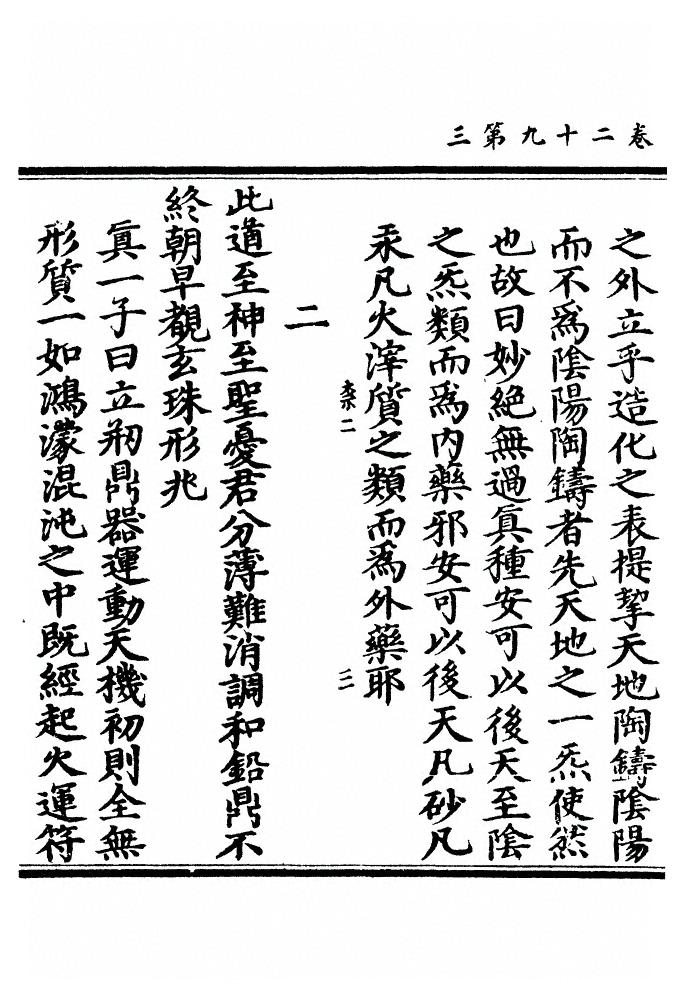 卷二十九第三
之外立乎造化之表提挈天地陶鑄陰陽
而不爲陰陽陶鑄者先天地之一炁使然
也故曰妙絕無過眞種安可以後天至陰
之炁類而爲內藥邪安可以後天凡砂凡
汞凡火滓質之類而爲外藥耶
柰二
三
二
此道至神至聖憂君分薄難消調和鉛鼎不
終朝早覩玄珠形兆
眞一子曰立剏鼎器運動天機初則全無
形質一如鴻濛混沌之中既經起火運符